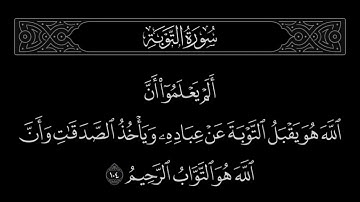 سُورَةُ التَّوْبَةِ
أَلَمْ يَعْلَمُوٓا۟ أَنَّ
ٱللَّهَ هُوَ يَقْبَلُ ٱلتَّوْبَةَ عَنْ عِبَادِهِۦ وَيَأْخُذُ ٱلصَّدَقَـٰتِ وَأَنَّ
ٱللَّهَ هُوَ ٱلتَّوَّابُ ٱلرَّحِيمُ ١٠٤